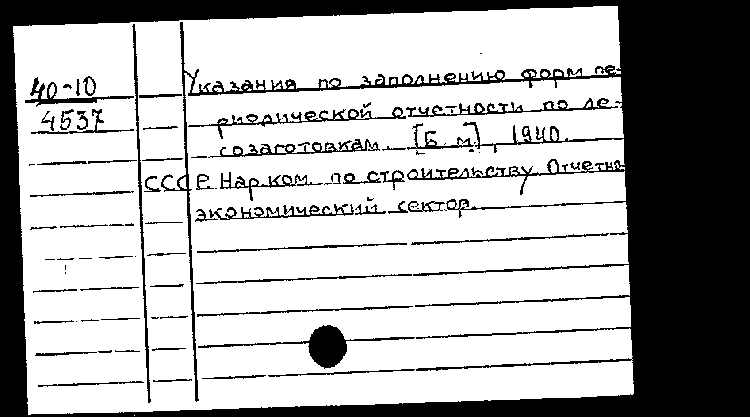 40-10
4537
Указания по заполнению форм пе-
риодической отчетности по ле-
созаготовкам. [Б. м.], 1940.
СССР. Нар.ком. по строительству. Отчетно-
экономический сектор.